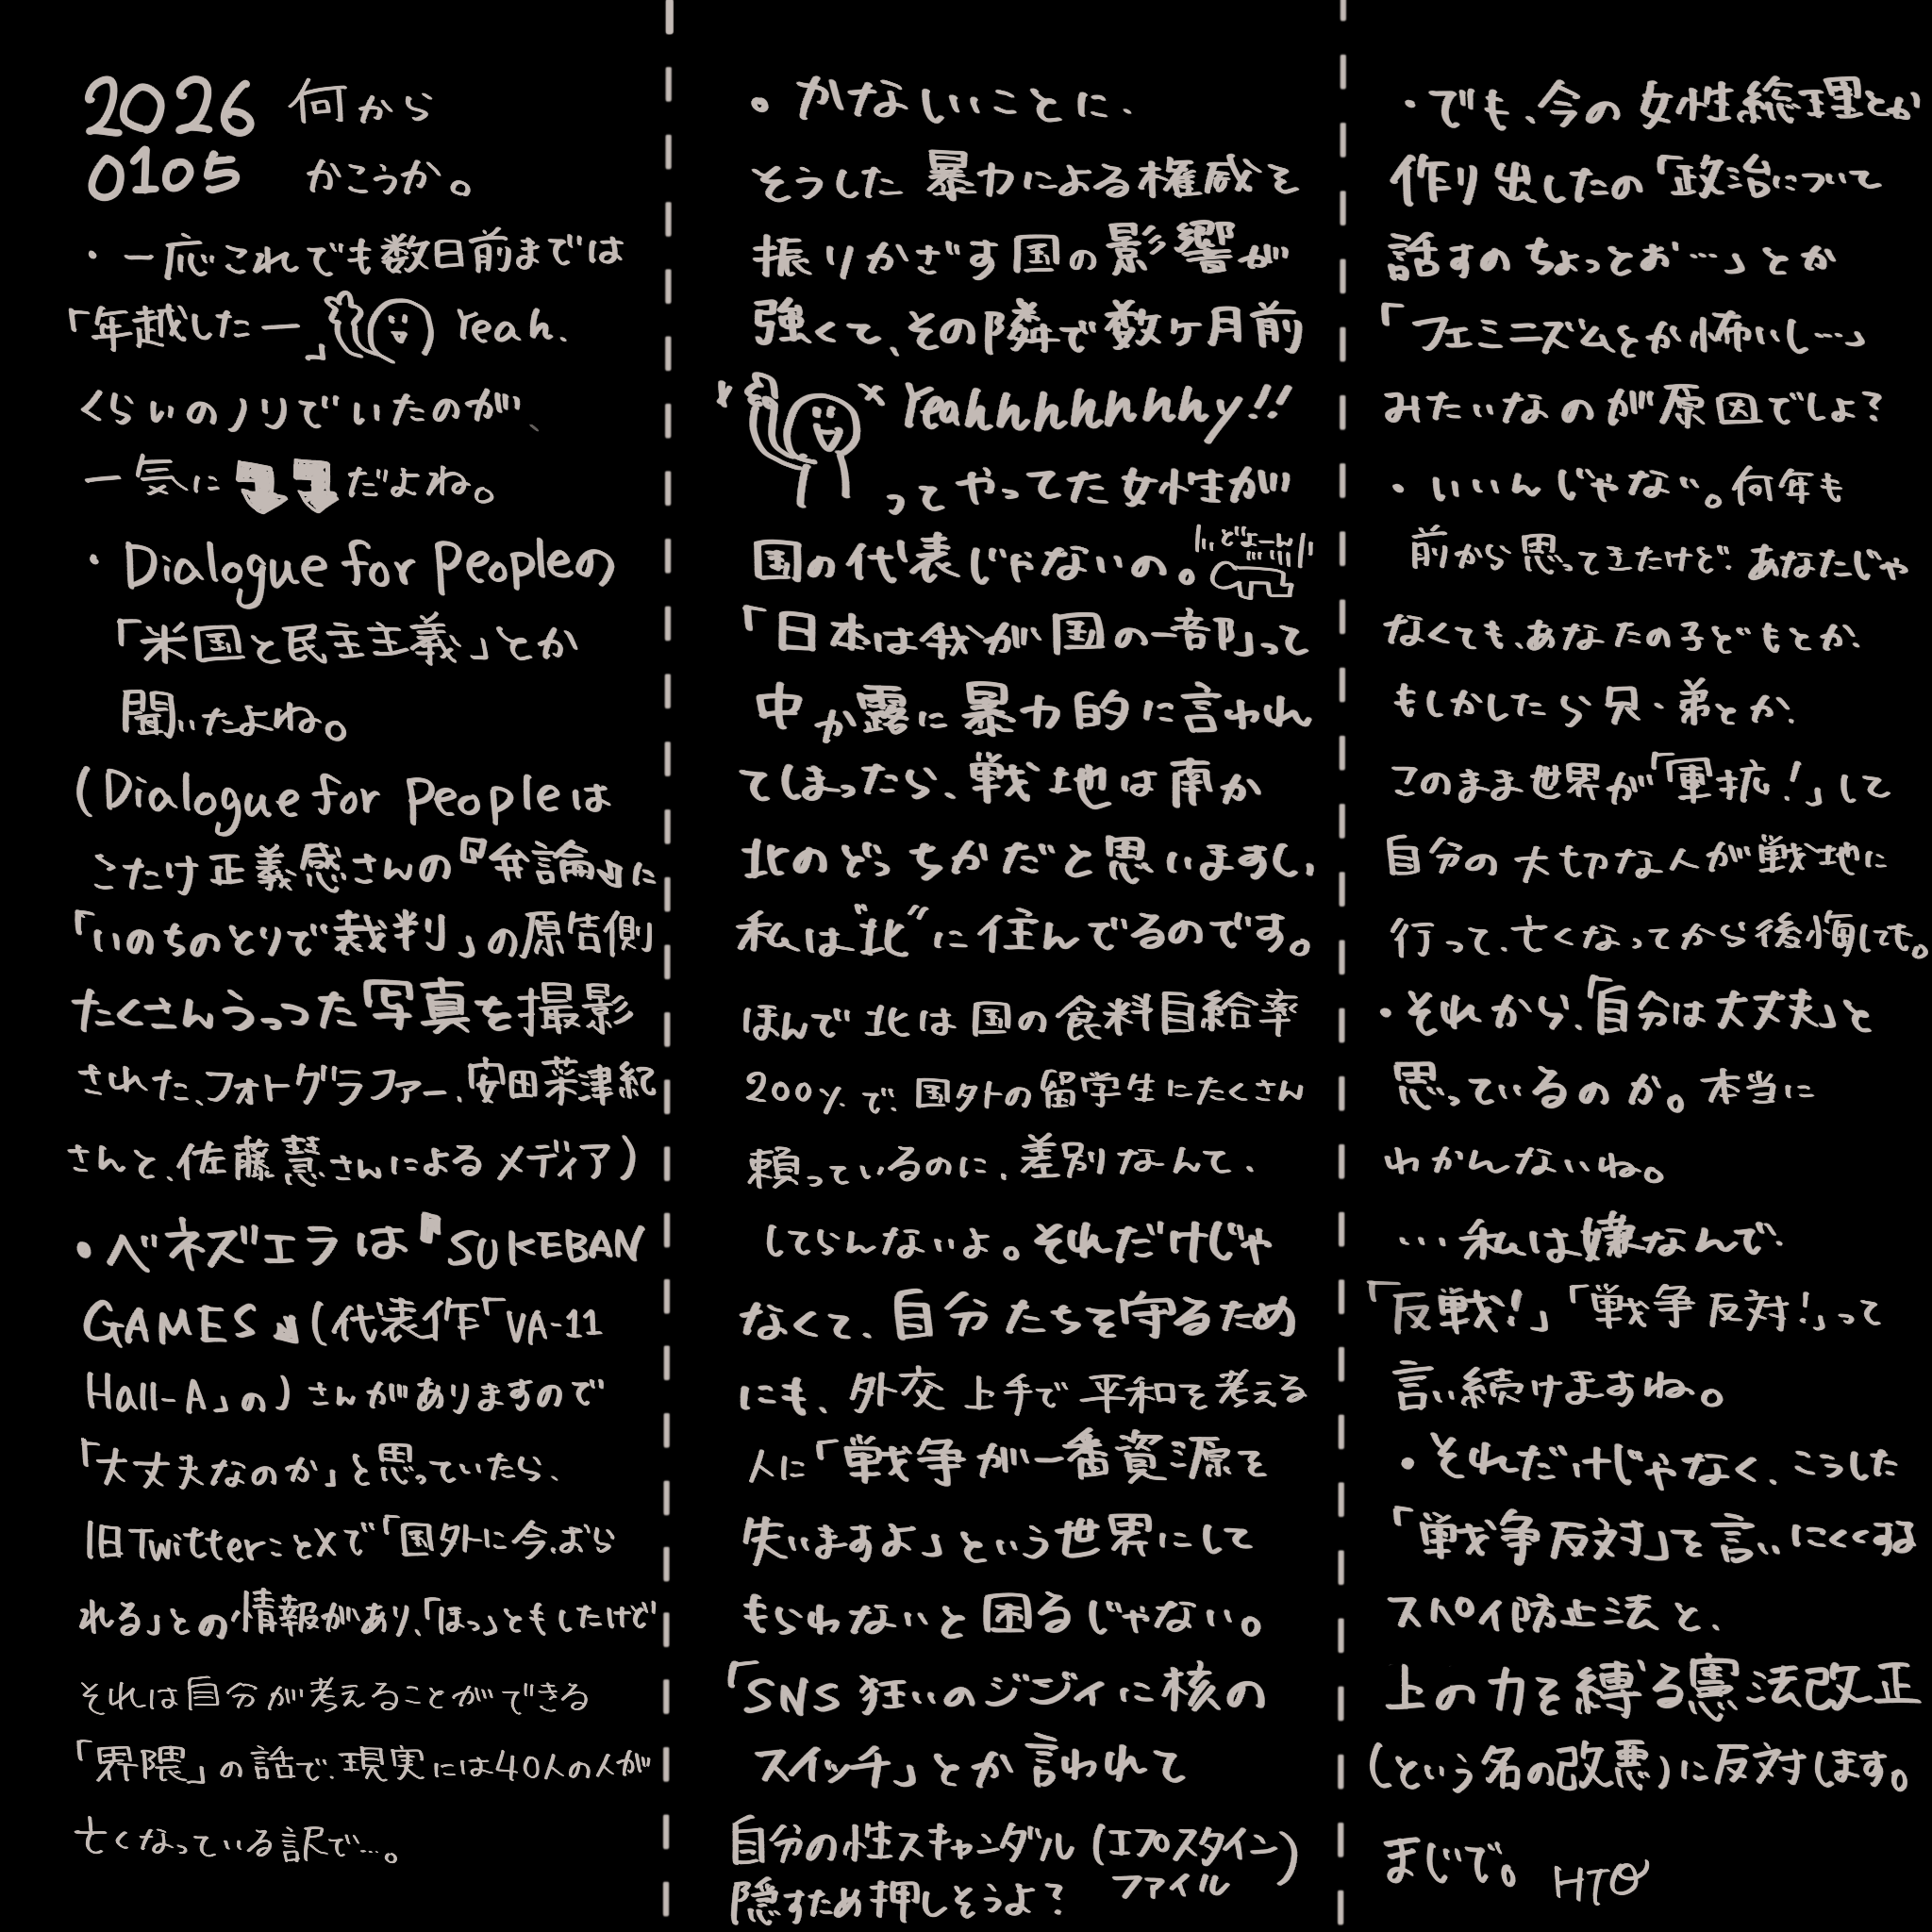 2026 何から
0105 かこうか。
・一応これでも数日前までは
「年越したー」 Yeah.
くらいのノリでいたのが、
一気に だよね。
・Dialogue for Peopleの
「米国と民主主義」とか
聞いたよね。
(Dialogue for Peopleは
こたけ正義感さんの『弁論』に
「いのちのとりで裁判」の原告側
たくさんうつった写真を撮影
された、フォトグラファー、安田菜津紀
さんと、佐藤慧さんによるメディア)
・ベネズエラは『SUKEBAN
GAMES』(代表作「VA-11
Hall-A」の)さんがありますので
「大丈夫なのか」と思っていたら、
旧TwitterことXで「国外に今、おら
れる」との情報があり、「ほっ」ともしたけど
それは自分が考えることができる
「界隈」の話で、現実には40人の人が
亡くなっている訳で…。
・かなしいことに、
そうした暴力による権威を
振りかざす国の影響が
強くて、その隣で数ヶ月前
Yeahhhhhhhy!!
ってやってた女性が
国の代表じゃないの。 どよーん
「日本は我が国の一部」って
中か露に暴力的に言われ
てしまったら、戦地は南か
北のどっちかだと思いますし、
私は"北"に住んでるのです。
ほんで北は国の食料自給率
200%で、国外の留学生にたくさん
頼っているのに、差別なんて、
してらんないよ。それだけじゃ
なくて、自分たちを守るため
にも、外交上手で平和を考える
人に「戦争が一番資源を
失いますよ」という世界にして
もらわないと困るじゃない。
「SNS狂いのジジイに核の
スイッチ」とか言われて
自分の性スキャンダル(エプスタイン
ファイル)
隠すため押しそうよ?
・でも、今の女性総理とか
作り出したの「政治について
話すのちょっとお…」とか
「フェミニズムとか怖いし…」
みたいなのが原因でしょ?
・いいんじゃない。何年も
前から思ってきたけど、あなたじゃ
なくても、あなたの子どもとか、
もしかしたら兄・弟とか、
このまま世界が「軍拡!」して
自分の大切な人が戦地に
行って、亡くなってから後悔しても。
・それから、「自分は大丈夫」と
思っているのか。本当に
わかんないね。
…私は嫌なんで、
「反戦!」「戦争反対!」って
言い続けますね。
・それだけじゃなく、こうした
「戦争反対」を言いにくくする
スパイ防止法と、
上の力を縛る憲法改正
(という名の改悪)に反対します。
まじで。 HTO